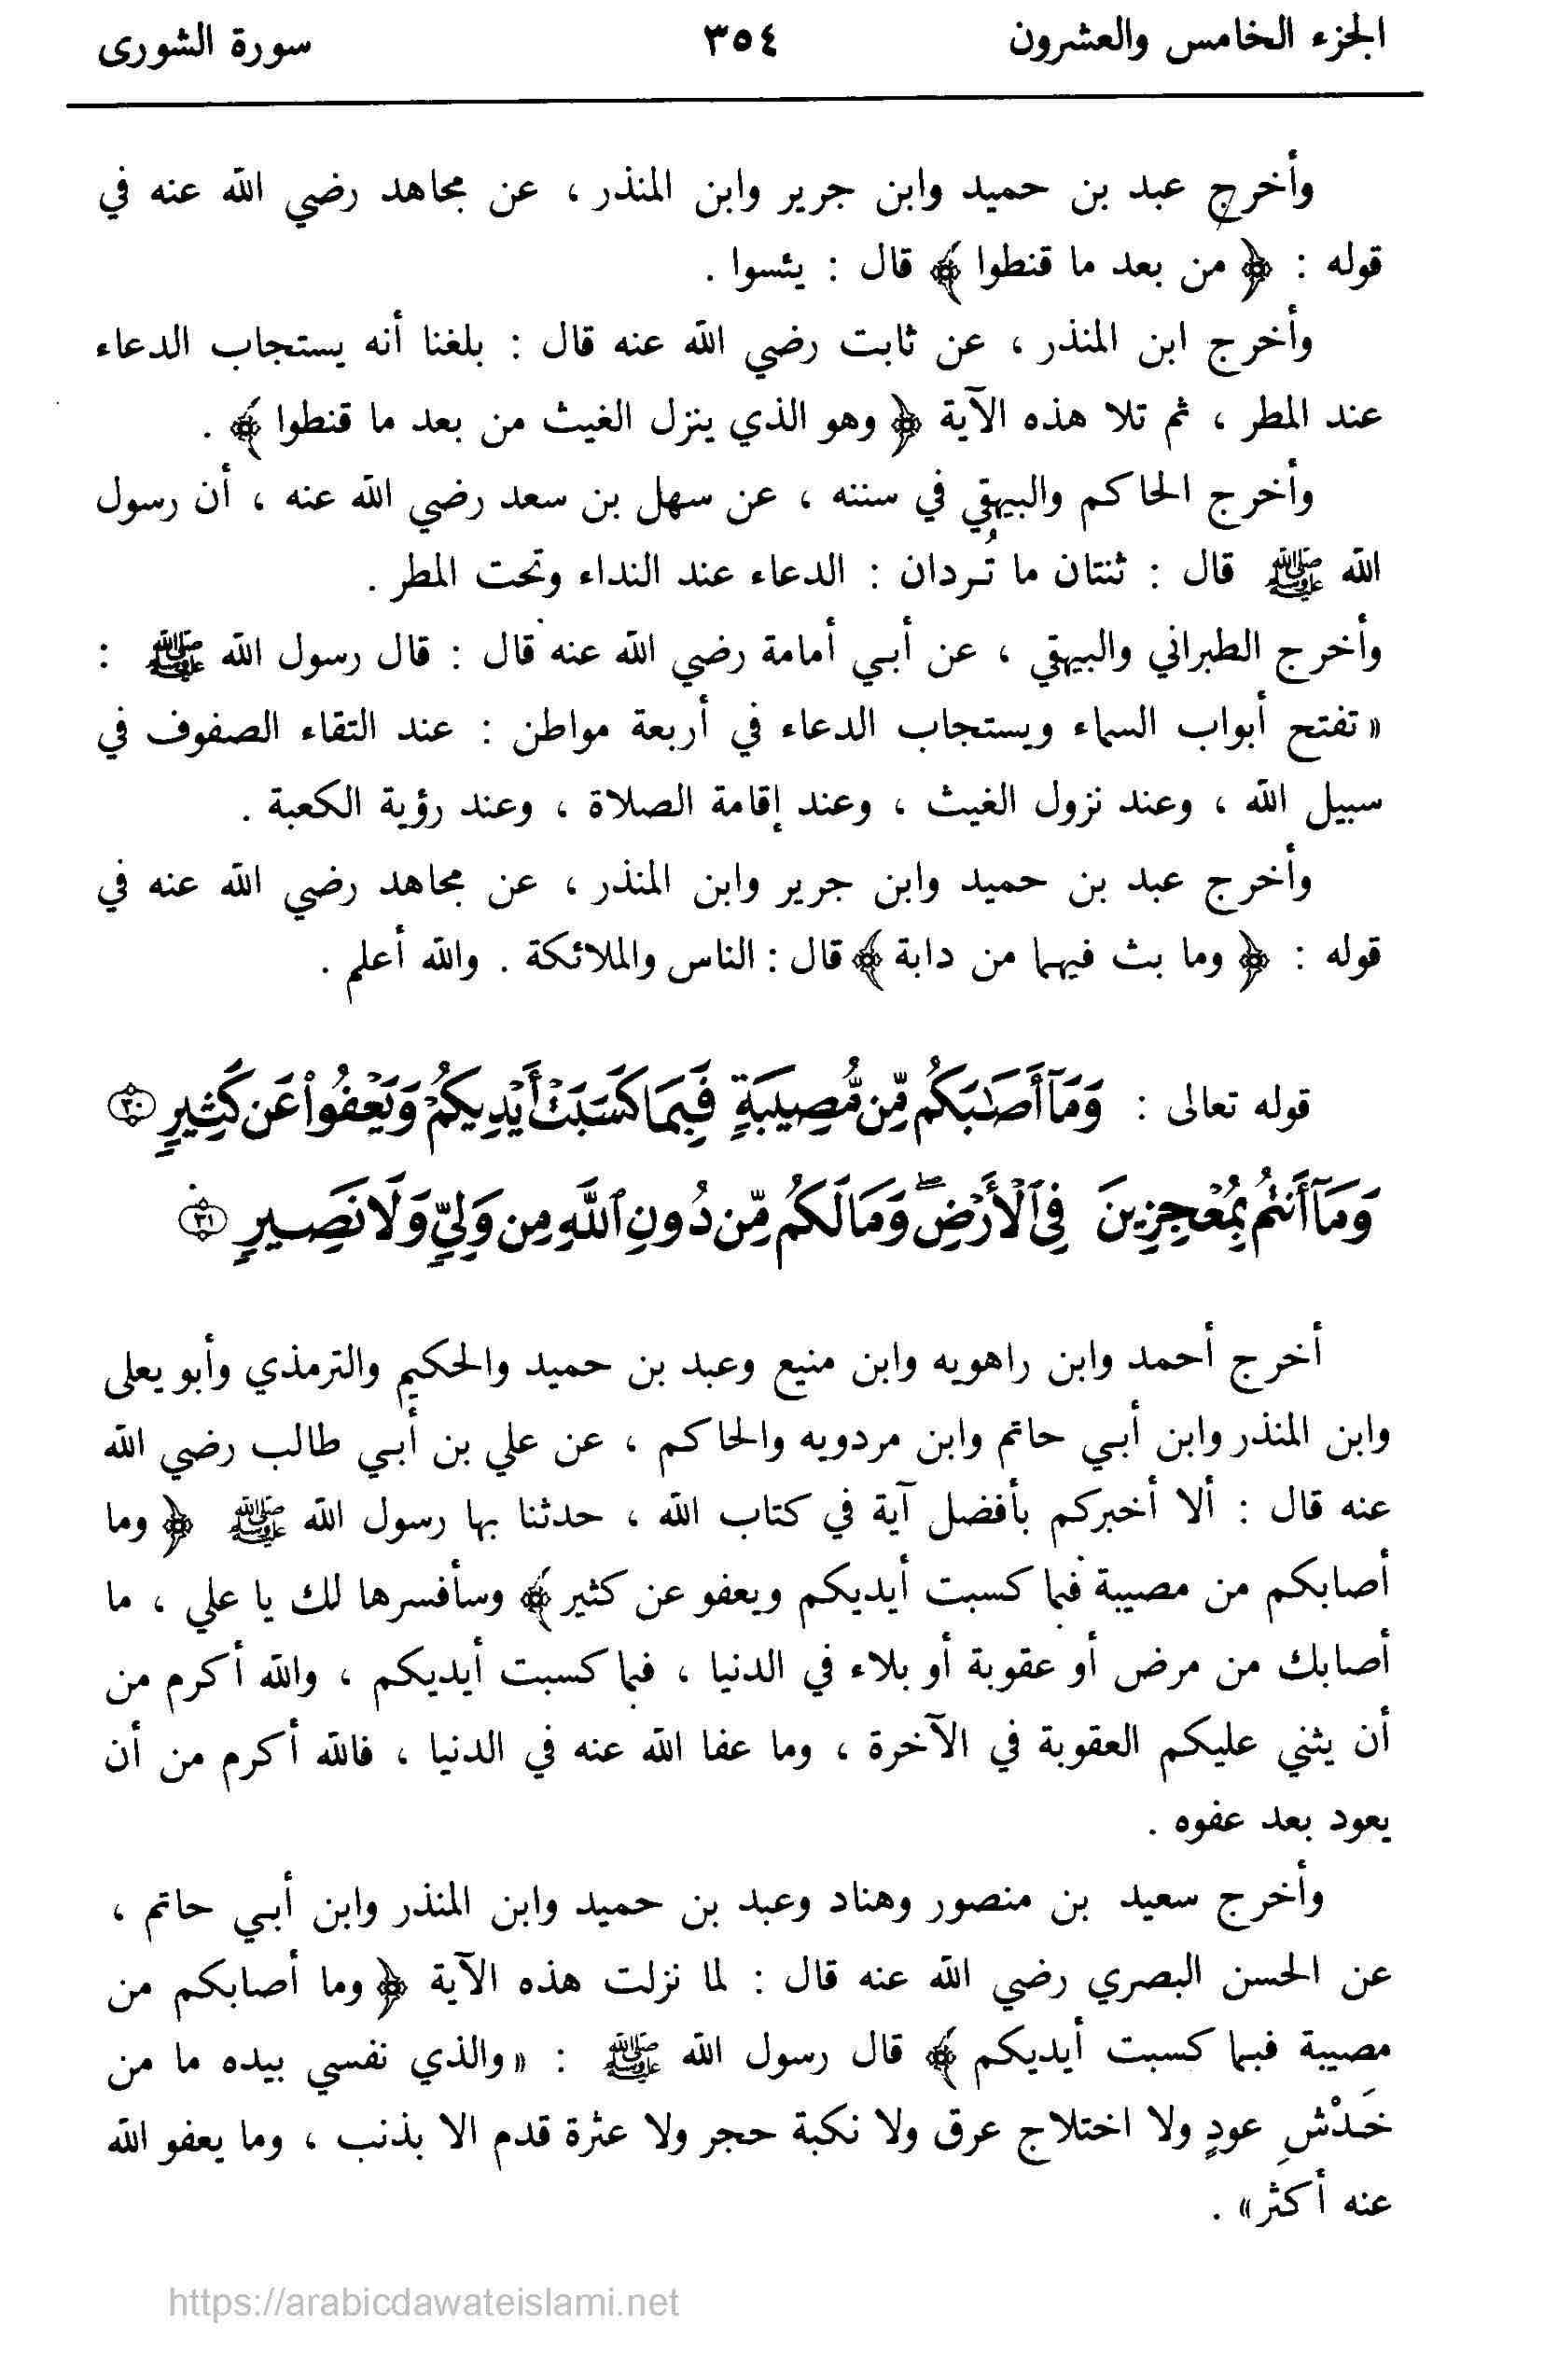 الجزء الخامس والعشرون ٣٥٤ سورة الشورى
وأخرج عبد بن حميد وابن جرير وابن المنذر ، عن مجاهد رضي الله عنه في
قوله : ﴿ من بعد ما قنطوا ﴾ قال : يئسوا .
وأخرج ابن المنذر ، عن ثابت رضي الله عنه قال : بلغنا أنه يستجاب الدعاء
عند المطر ، ثم تلا هذه الآية ﴿ وهو الذي ينزل الغيث من بعد ما قنطوا ﴾ .
وأخرج الحاكم والبيهقي في سننه ، عن سهل بن سعد رضي الله عنه ، أن رسول
الله ﷺ قال : ثنتان ما تُردان : الدعاء عند النداء وتحت المطر .
وأخرج الطبراني والبيهقي ، عن أبي أمامة رضي الله عنه قال : قال رسول الله ﷺ :
« تفتح أبواب السماء ويستجاب الدعاء في أربعة مواطن : عند التقاء الصفوف في
سبيل الله ، وعند نزول الغيث ، وعند إقامة الصلاة ، وعند رؤية الكعبة .
وأخرج عبد بن حميد وابن جرير وابن المنذر ، عن مجاهد رضي الله عنه في
قوله : ﴿ وما بث فيهما من دابة ﴾ قال : الناس والملائكة . والله أعلم .
قوله تعالى : وَمَآ أَصَٰبَكُم مِّن مُّصِيبَةٍ فَبِمَا كَسَبَتْ أَيْدِيكُمْ وَيَعْفُوا۟ عَن كَثِيرٍ ٣٠
وَمَآ أَنتُم بِمُعْجِزِينَ فِي ٱلْأَرْضِ ۖ وَمَا لَكُم مِّن دُونِ ٱللَّهِ مِن وَلِيٍّ وَلَا نَصِيرٍ ٣١
أخرج أحمد وابن راهويه وابن منيع وعبد بن حميد والحكيم والترمذي وأبو يعلى
وابن المنذر وابن أبي حاتم وابن مردويه والحاكم ، عن علي بن أبي طالب رضي الله
عنه قال : ألا أخبركم بأفضل آية في كتاب الله ، حدثنا بها رسول الله ﷺ ﴿ وما
أصابكم من مصيبة فبما كسبت أيديكم ويعفو عن كثير ﴾ وسأفسرها لك يا علي ، ما
أصابك من مرض أو عقوبة أو بلاء في الدنيا ، فبما كسبت أيديكم ، والله أكرم من
أن يثني عليكم العقوبة في الآخرة ، وما عفا الله عنه في الدنيا ، فالله أكرم من أن
يعود بعد عفوه .
وأخرج سعيد بن منصور وهناد وعبد بن حميد وابن المنذر وابن أبي حاتم ،
عن الحسن البصري رضي الله عنه قال : لما نزلت هذه الآية ﴿ وما أصابكم من
مصيبة فبما كسبت أيديكم ﴾ قال رسول الله ﷺ : « والذي نفسي بيده ما من
خَدْشِ عودٍ ولا اختلاج عرق ولا نكبة حجر ولا عثرة قدم الا بذنب ، وما يعفو الله
عنه أكثر » .
https://arabicdawateislami.net